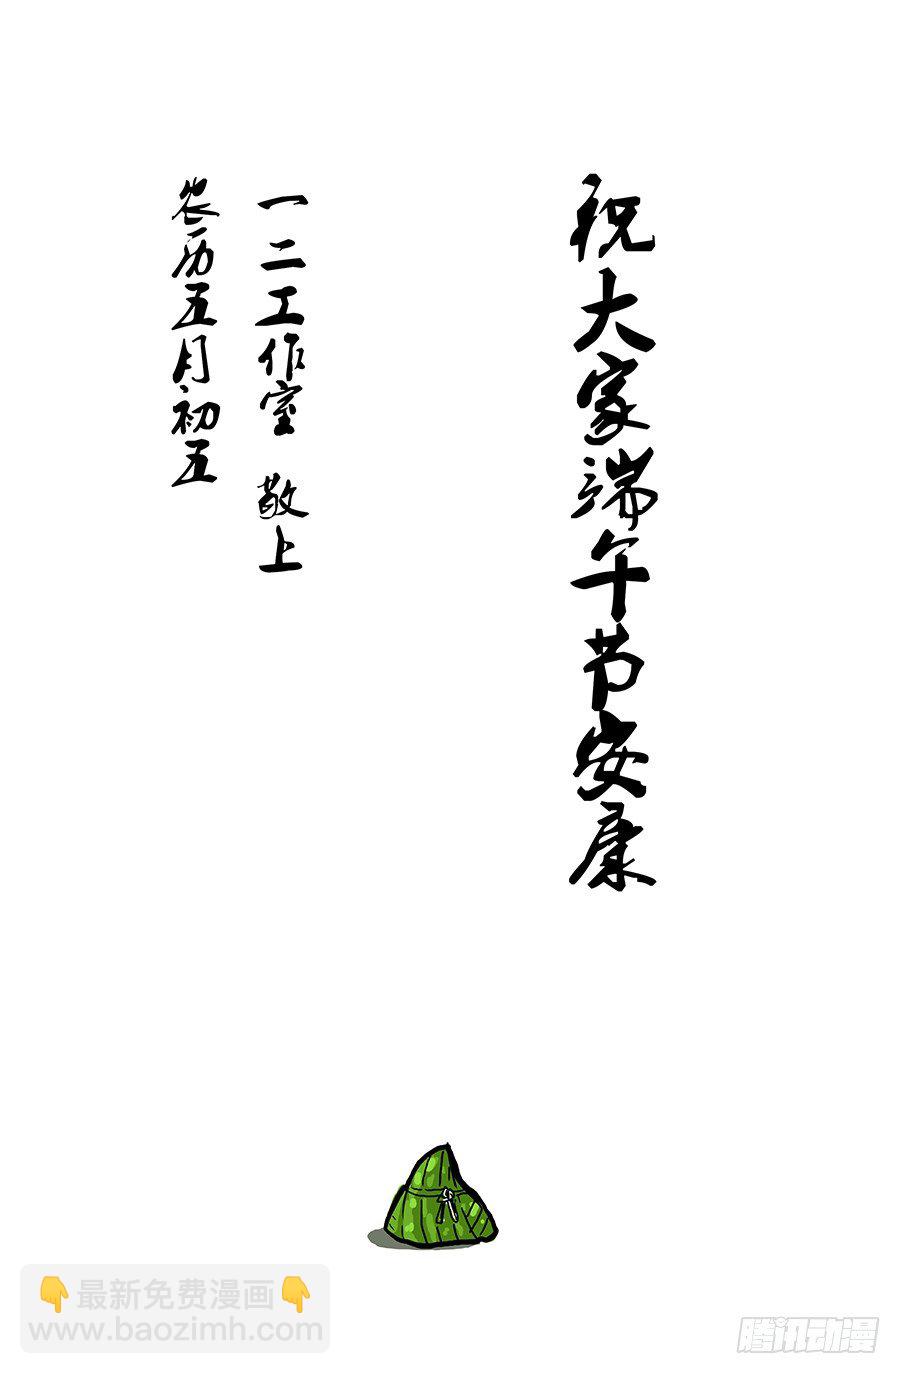 祝大家端午节安康
一二工作室 敬上
农历五月初五
👇最新免费漫画👇
www.baozimh.com
腾讯动漫